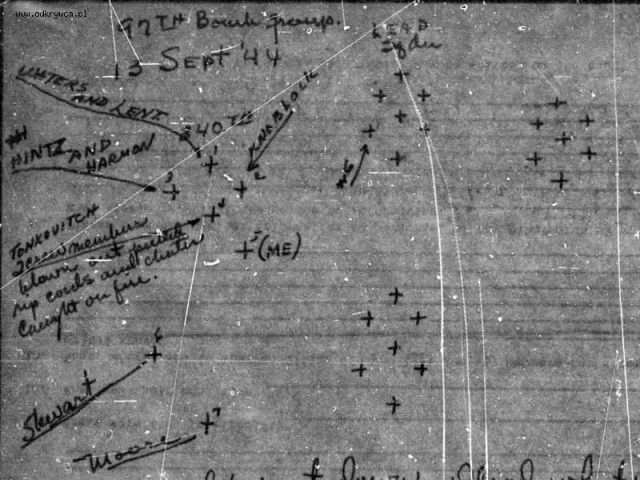 www.odkrywca.pl
97TH Bomb group.
13 SEPT '44
LEAD
Sqdn
WATERS
AND LENT
340TH
KNOBLOCK
#1
HINTZ AND
HARMON
1
2
3
4
#6
TONKOVITCH
2 crew members
blown out
rip cords and chutes
Caught on fire.
5 (ME)
6
Stewart
7
Moore